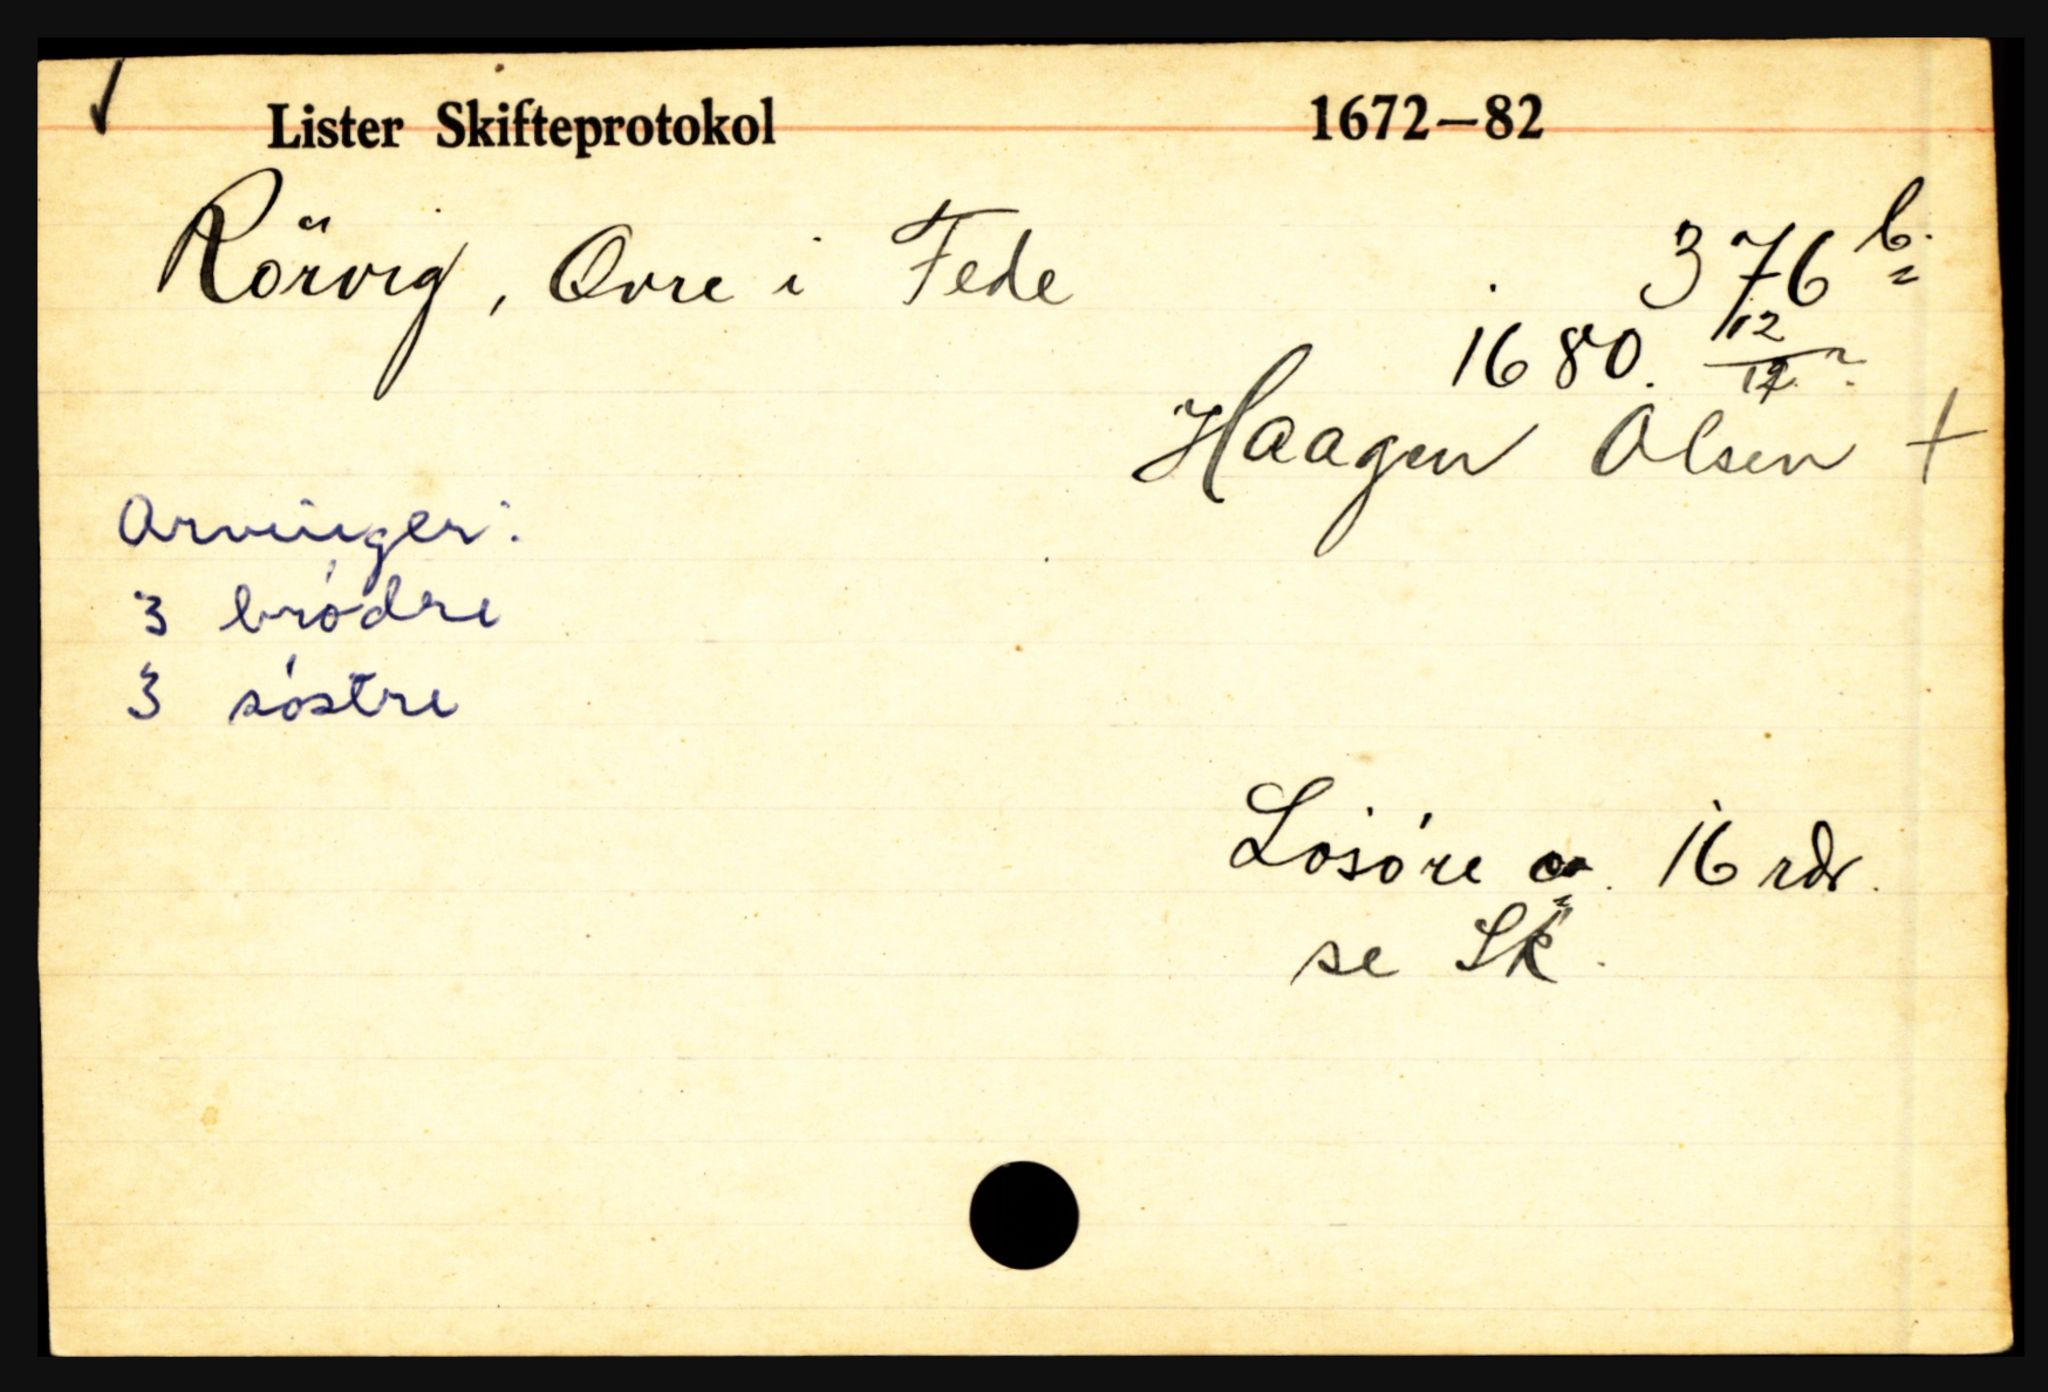 Lister Skifteprotokol 1672–82
Rörvig, Ovre i Fede 376 b.
1680. 12/12 ?
Haagen Olsen +
Arvinger:
3 brødre
3 søstre
Losóre 16 rdr.
se Sk.